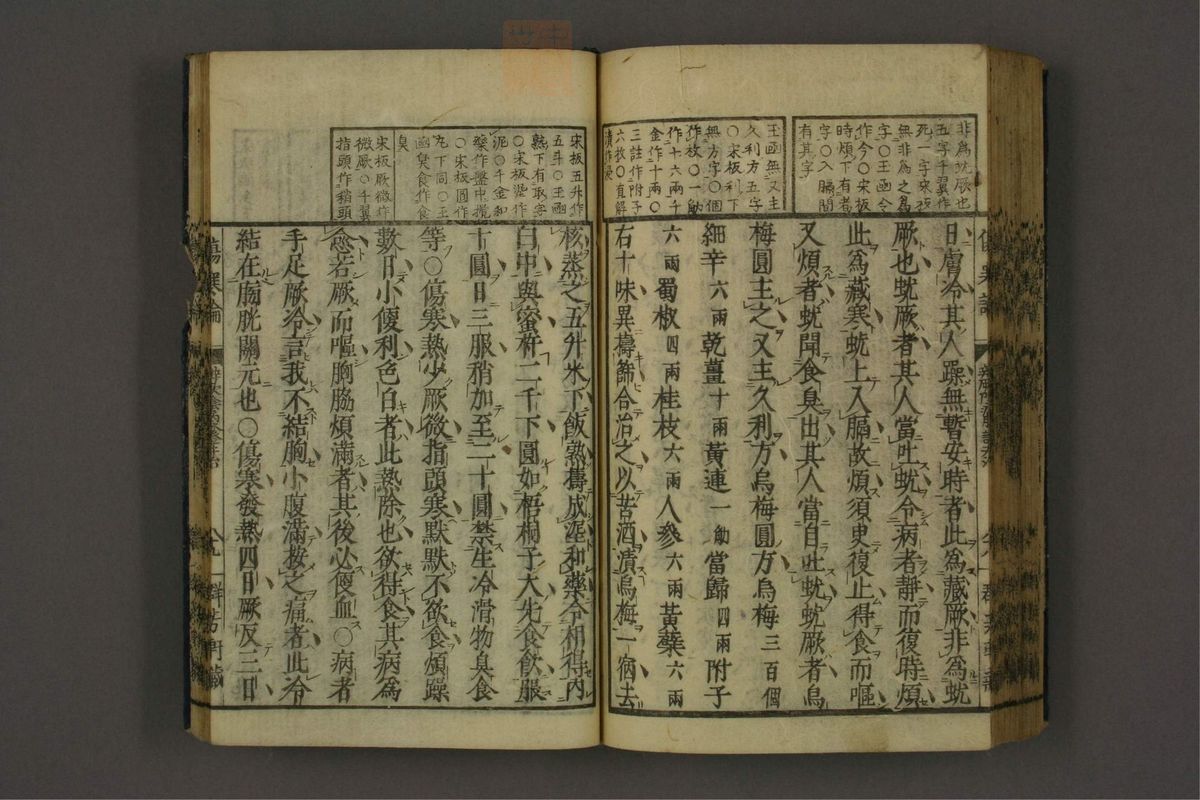 非為蚘厥也
五字千翼作
死一字來夜
無非為之為
字○玉函令
作今○宋板
時煩下有者
字○入膈間
有其字
玉函無又主
久利方五字
○宋板利下
無方字○個
作枚○一觔
作十六兩千
金作十兩○
三註作附子
六枚○直解
漬作浸
日膚冷其人躁無暫安時者此為藏厥非為蚘
厥也蚘厥者其人當吐蚘令病者靜而復時煩
此為藏寒蚘上入膈故煩須臾復止得食而嘔
又煩者蚘聞食臭出其人當自吐蚘蚘厥者烏
梅圓主之又主久利方烏梅圓方烏梅三百個
細辛六兩乾薑十兩黃連一觔當歸四兩附子
六兩蜀椒四兩桂枝六兩人參六兩黃蘗六兩
右十味異擣篩合治之以苦酒漬烏梅一宿去
宋板五升作
五斗○玉函
熟下有取字
○宋板塗作
泥○千金和
藥作盤中攪
○宋板圓作
丸下同○玉
函臭食作食
臭
宋板厥微作
微厥○千翼
指頭作稍頭
核蒸之五升米下飯熟擣成泥和藥令相得內
臼中與蜜杵二千下圓如梧桐子大先食飲服
十圓日三服稍加至二十圓禁生冷滑物臭食
等○傷寒熱少厥微指頭寒默默不欲食煩躁
數日小便利色白者此熱除也欲得食其病為
愈若厥而嘔胸脇煩滿者其後必便血○病者
手足厥冷言我不結胸小腹滿按之痛者此冷
結在膀胱關元也○傷寒發熱四日厥反三日
傷寒論